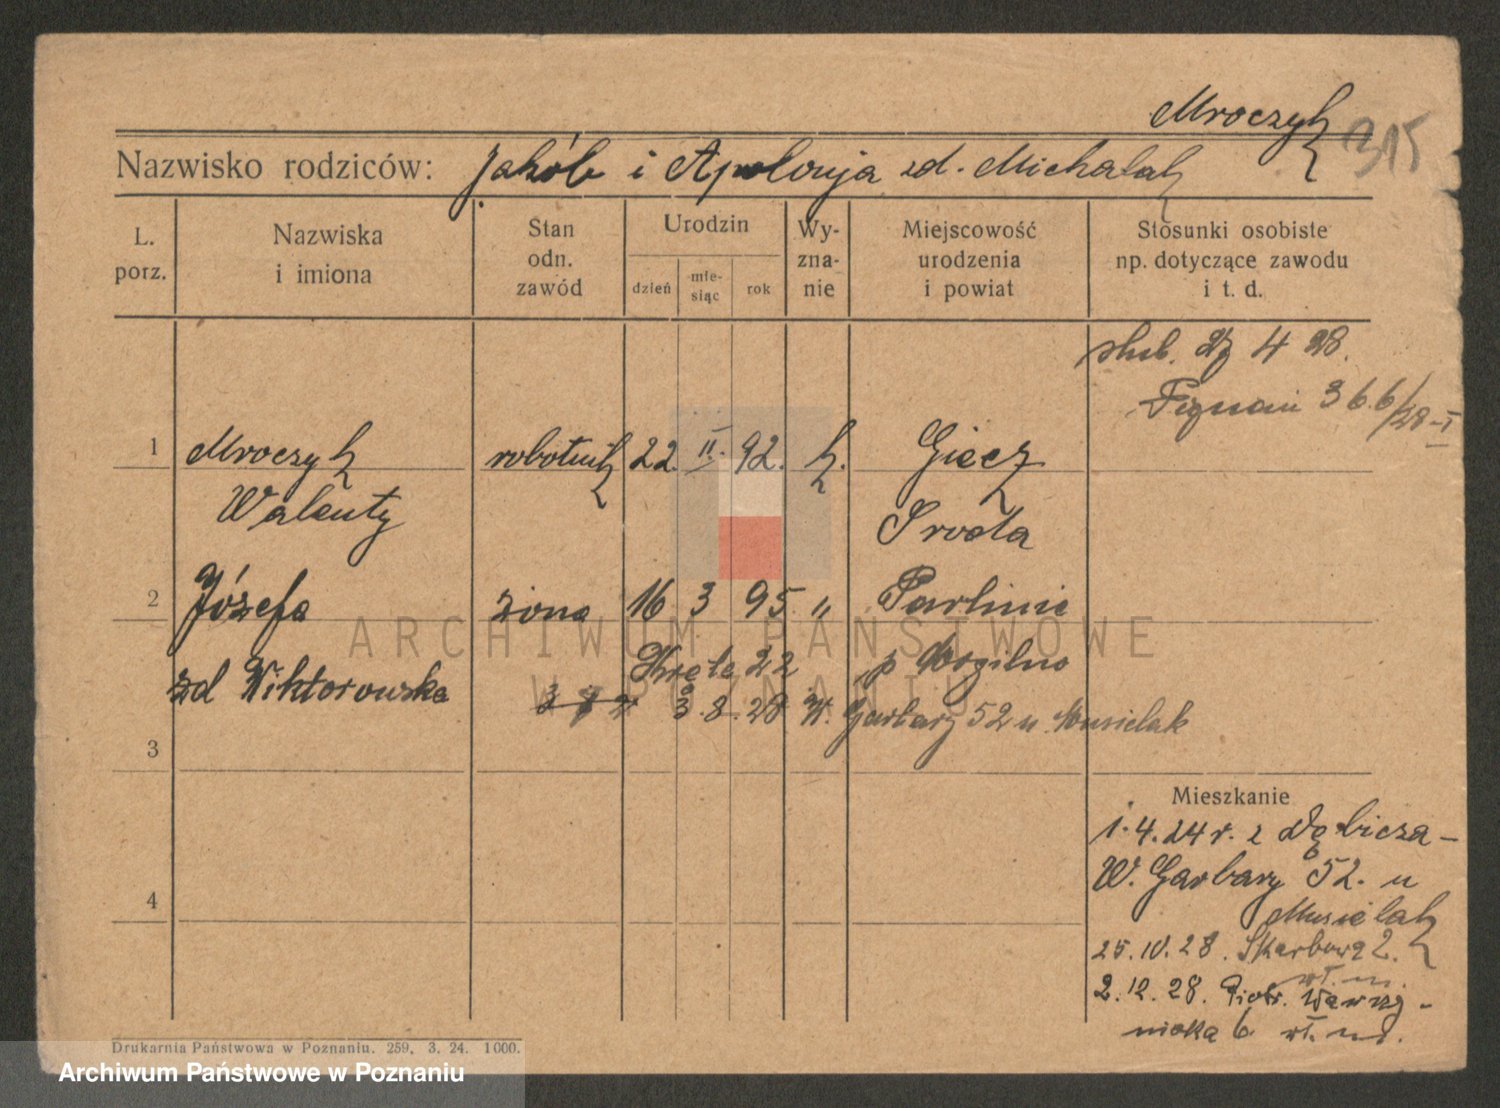 Mroczyk
315
Nazwisko rodziców: Jakób i Apolonja zd. Michalak
L. porz.
Nazwiska i imiona
Stan odn. zawód
Urodzin
dzień
mie-siąc
rok
Wy-zna-nie
Miejscowość urodzenia i powiat
Stosunki osobiste np. dotyczące zawodu i t. d.
ślub. 4 28.
36.6/28-I
1 Mroczyk robotnik 22. II. 92. k. Giecz
Walenty Środa
2 Józefa żona 16 3 95 " Parlinie
zd Wiktorowska p Mogilno
Kręta 22
3. 8. 28 W. Garbary 52 u. Musielak
3
Mieszkanie
1.4.24 r. z Dębicza-
W. Garbary 52. u
Musielak
4
25.10.28. Skarbowa 2.
wł. m.
2.12.28. Piotr. Wawrzy-
niaka 6. wł. m.
Drukarnia Państwowa w Poznaniu. 259, 3. 24. 1000.
ARCHIWUM PAŃSTWOWE
W POZNANIU
Archiwum Państwowe w Poznaniu